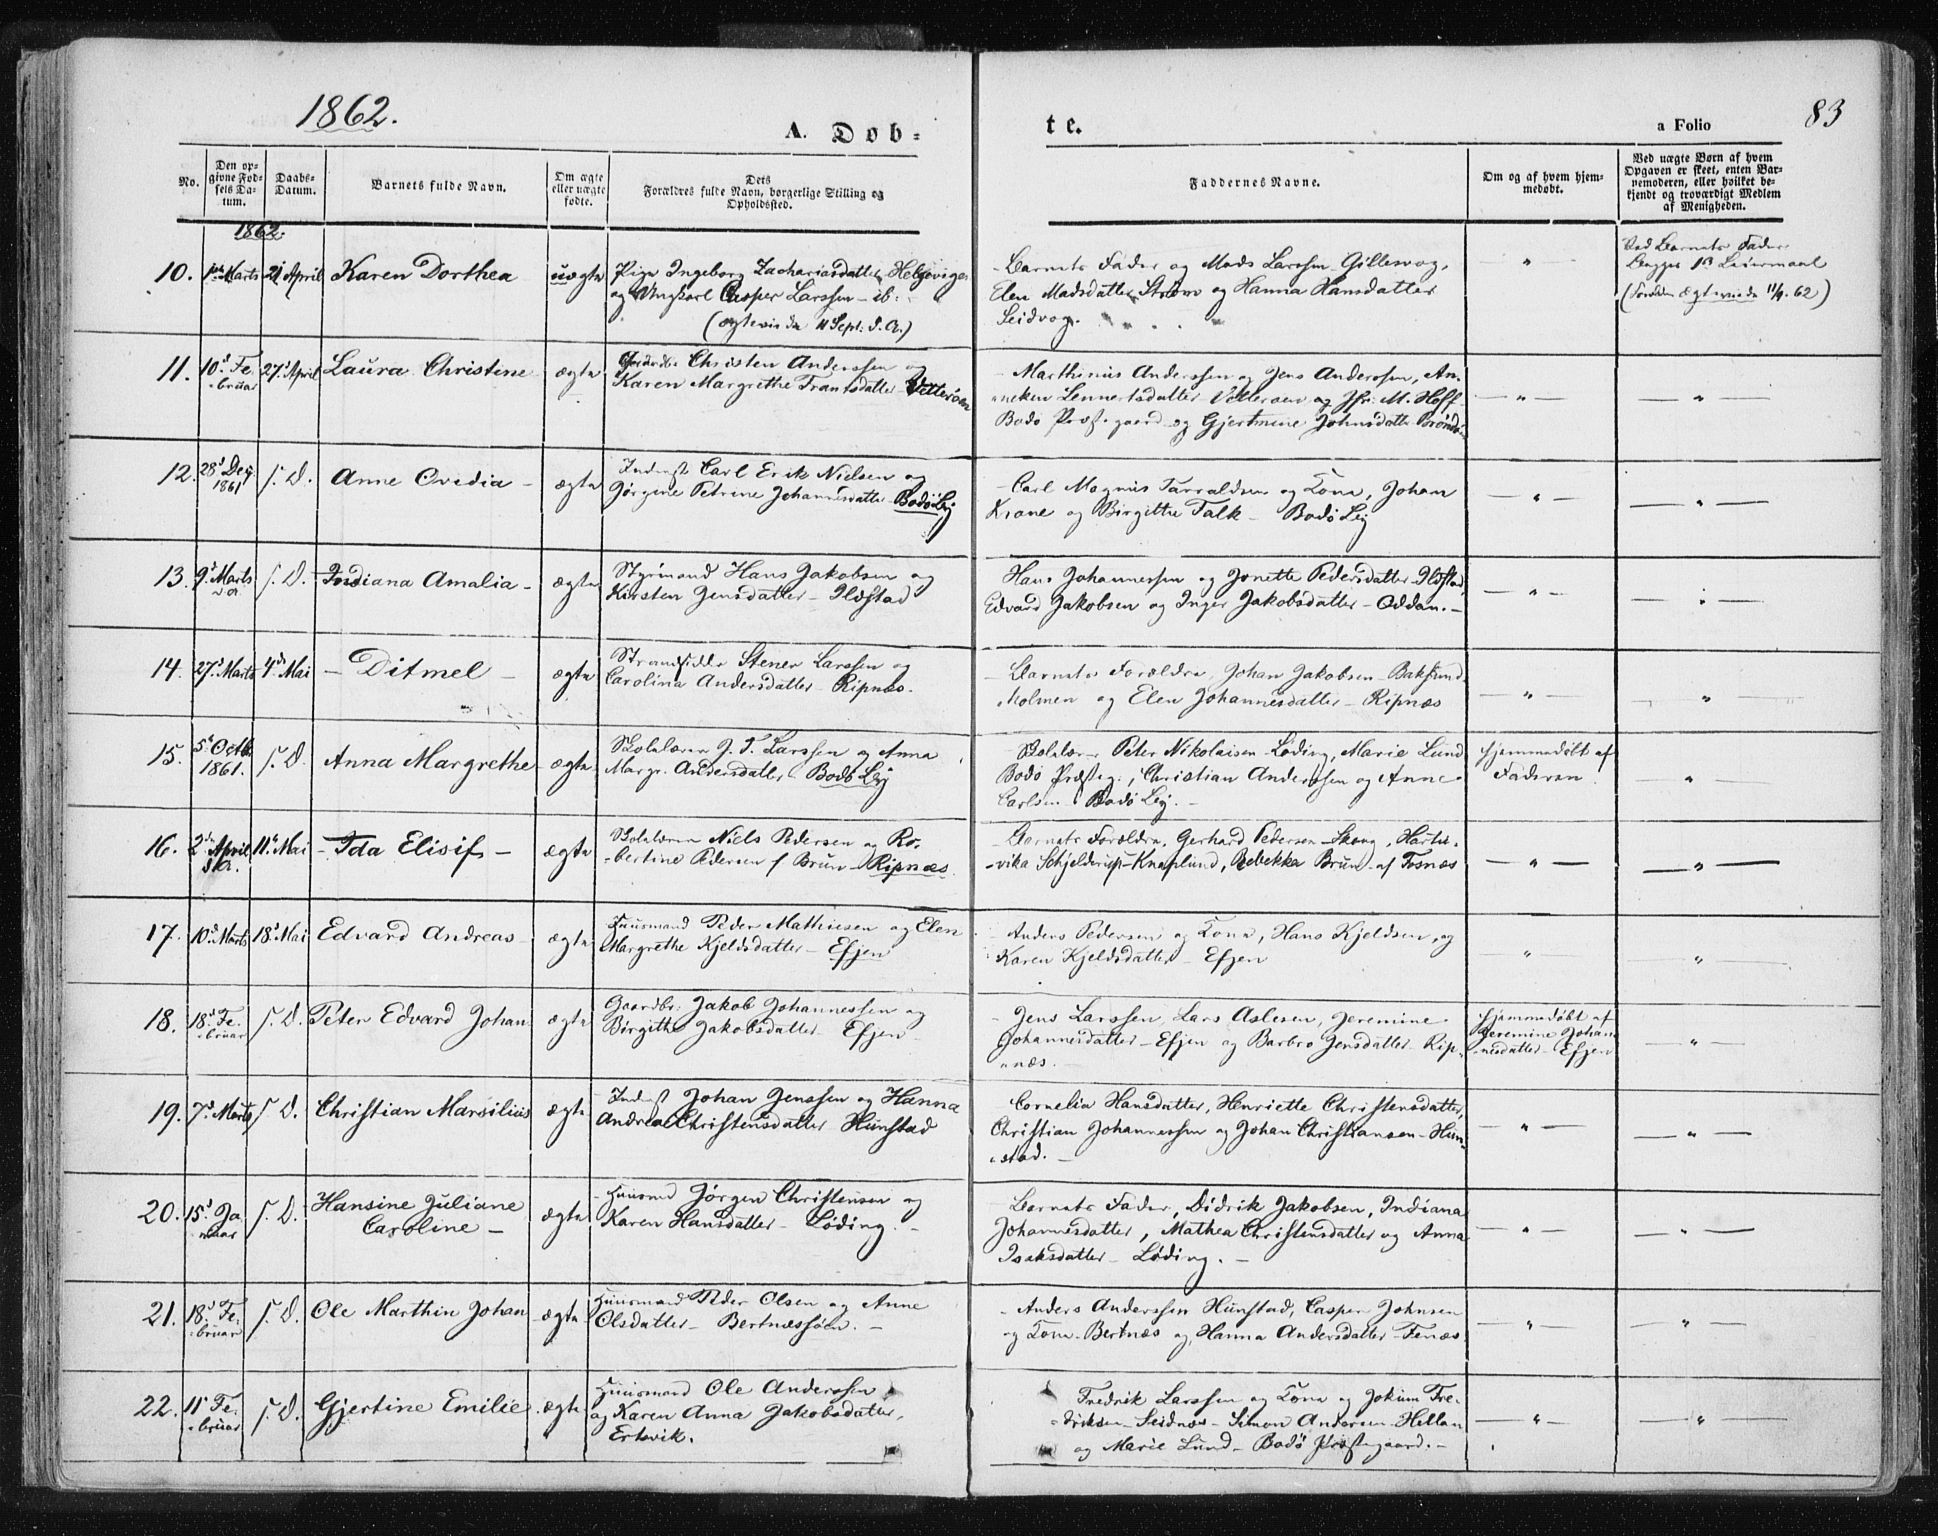 1862.
A. Døb-
te.
a Folio
83
No.
Den op-
givne Fød-
sels Da-
tum.
Daabs-
Datum.
Barnets fulde Navn.
Om ægte
eller uægte
fødte.
Dets
Forældres fulde Navn, borgerlige Stilling og
Opholdssted.
Faddernes Navne.
Om og af hvem hjem-
medøbt.
Ved uægte Børn af hvem
Opgaven er skeet, enten Bar-
nemoderen, eller hvilket be-
kjendt og troværdigt Medlem
af Menigheden.
1862.
10. Marts 21 April Karen Dorthea uægte Pige Ingeborg Zachariasdatter
og Ungkarl Casper Larssen - ib:
(ægteviede 11 Sept: d. A.)
Barnets Fader og Mads Larssen Gillesvog,
Elen Madsdatter Strøm og Hanna Hansdatter
Seidvog.
"
Barnets Fader
Begges 1ste Leiermaal
(Forældre ægteviede 11/9. 62)
11. 10d Fe-
bruar 27d April Laura Christine ægte Christen Anderssen og
Karen Margrethe Frantsdatter Vetterøen
Marthinus Anderssen og Jens Anderssen, An-
neken Lennertsdatter Vetterøen og Jfr: M. Hoff
Bodø Præstegaard og Gjertmine Johnsdatter
- " -
- " -
12. 28d Dec
1861 s. D. Anne Ovidia - ægte Inderst Carl Erik Nielsen og
Jørgine Petrine Johannesdatter Bodø Lej
Carl Magnus Tarraldsen og Kone, Johan
Krane og Birgitte Falk - Bodø Lej
- " -
- " -
13. 9d Marts
d. A. s. D. Indiana Amalia - ægte Styrmand Hans Jakobsen og
Kirsten Jensdatter - Ildstad
Hans Johannessen og Jonette Pedersdatter Ildstad,
Edvard Jakobsen og Inger Jakobsdatter - Oddan. -
- " -
- " -
14. 27d Marts 4de Mai - Ditmel - ægte Strandsidder Stener Larssen og
Carolina Andersdatter - Ripnæs.
Barnets Forældre, Johan Jakobsen - Baksund
Molmen og Elen Johannesdatter - Ripnæs
- " -
"
15. 5d Octb.
1861. s. D. Anna Margrethe ægte Skolelærer J. T. Larssen og Anna
Margr. Andersdatter Bodø Lej
Skolelær - Peter Nikolaisen Løding, Marie Lund
Bodø Præsteg:, Christian Andersen og Anne
Carlsen - Bodø Lej. -
hjemmedøbt af
Faderen
"
16. 2den April
d. A. 11te Mai - Ida Elisif - ægte Skolelærer Niels Pedersen og Ro-
bertine Pedersen f Brun - Ripnæs.
Barnets Forældre, Gerhard Pedersen Skaug, Hartu-
vika Schjelderup - Knaplund, Rebekka Brun - af Fosnæs
- " -
- " -
17. 10d Marts 18d Mai Edvard Andreas - ægte Huusmand Peder Mathiesen og Elen
Margrethe Kjeldsdatter - Efjen
Anders Pedersen og Kone, Hans Kjeldsen, og
Karen Kjeldsdatter - Efjen
- " -
- " -
18. 18d Fe-
bruar s. D. Peter Edvard Johan ægte Gaardbr: Jakob Johannessen og
Birgithe Jakobsdatter Efjen
Jens Larssen, Lars Aslesen, Jeremine
Johannesdatter - Efjen og Barbro Jensdatter - Rip-
næs. -
hjemmedøbt af
Jeremine Johan-
nesdatter - Efjen
- " -
19. 7d Marts s. D. Christian Marsilius ægte Inderst Johan Jenssen og Hanna
Andrea Christensdatter Hunstad
Cornelia Hansdatter, Henriette Christensdatter,
Christian Johannessen og Johan Christiansen - Hun-
stad. -
- " -
- " -
20. 15d Ja-
nuar s. D. Hansine Juliane
Caroline - ægte Huusmd Jørgen Christensen og
Karen Hansdatter - Løding. -
Barnets Fader, Didrik Jakobsen, Indiana
Johannesdatter, Mathea Christensdatter og Anna
Isaksdatter - Løding. -
- " -
- " -
21. 18d Fe-
bruar s. D. Ole Marthin Johan ægte Huusmand Peder Olsen og Anne
Olsdatter - Bertnæssøen. -
Anders Anderssen Hunstad, Casper Johnsen
og Kone - Bertnæs og Hanna Andersdatter - Fenæs
- " -
- " -
22. 11te Fe-
bruar s. D. Gjertine Emilie ægte Huusmand Ole Anderssen
og Karen Anna Jakobsdatter,
Ertsvik.
Fredrik Larssen og Kone og Jokum Fre-
driksen - Seidnæs - Simon Andersen - Hellan
og Marie Lund - Bodø Præstegaard. -
- " -
- " -